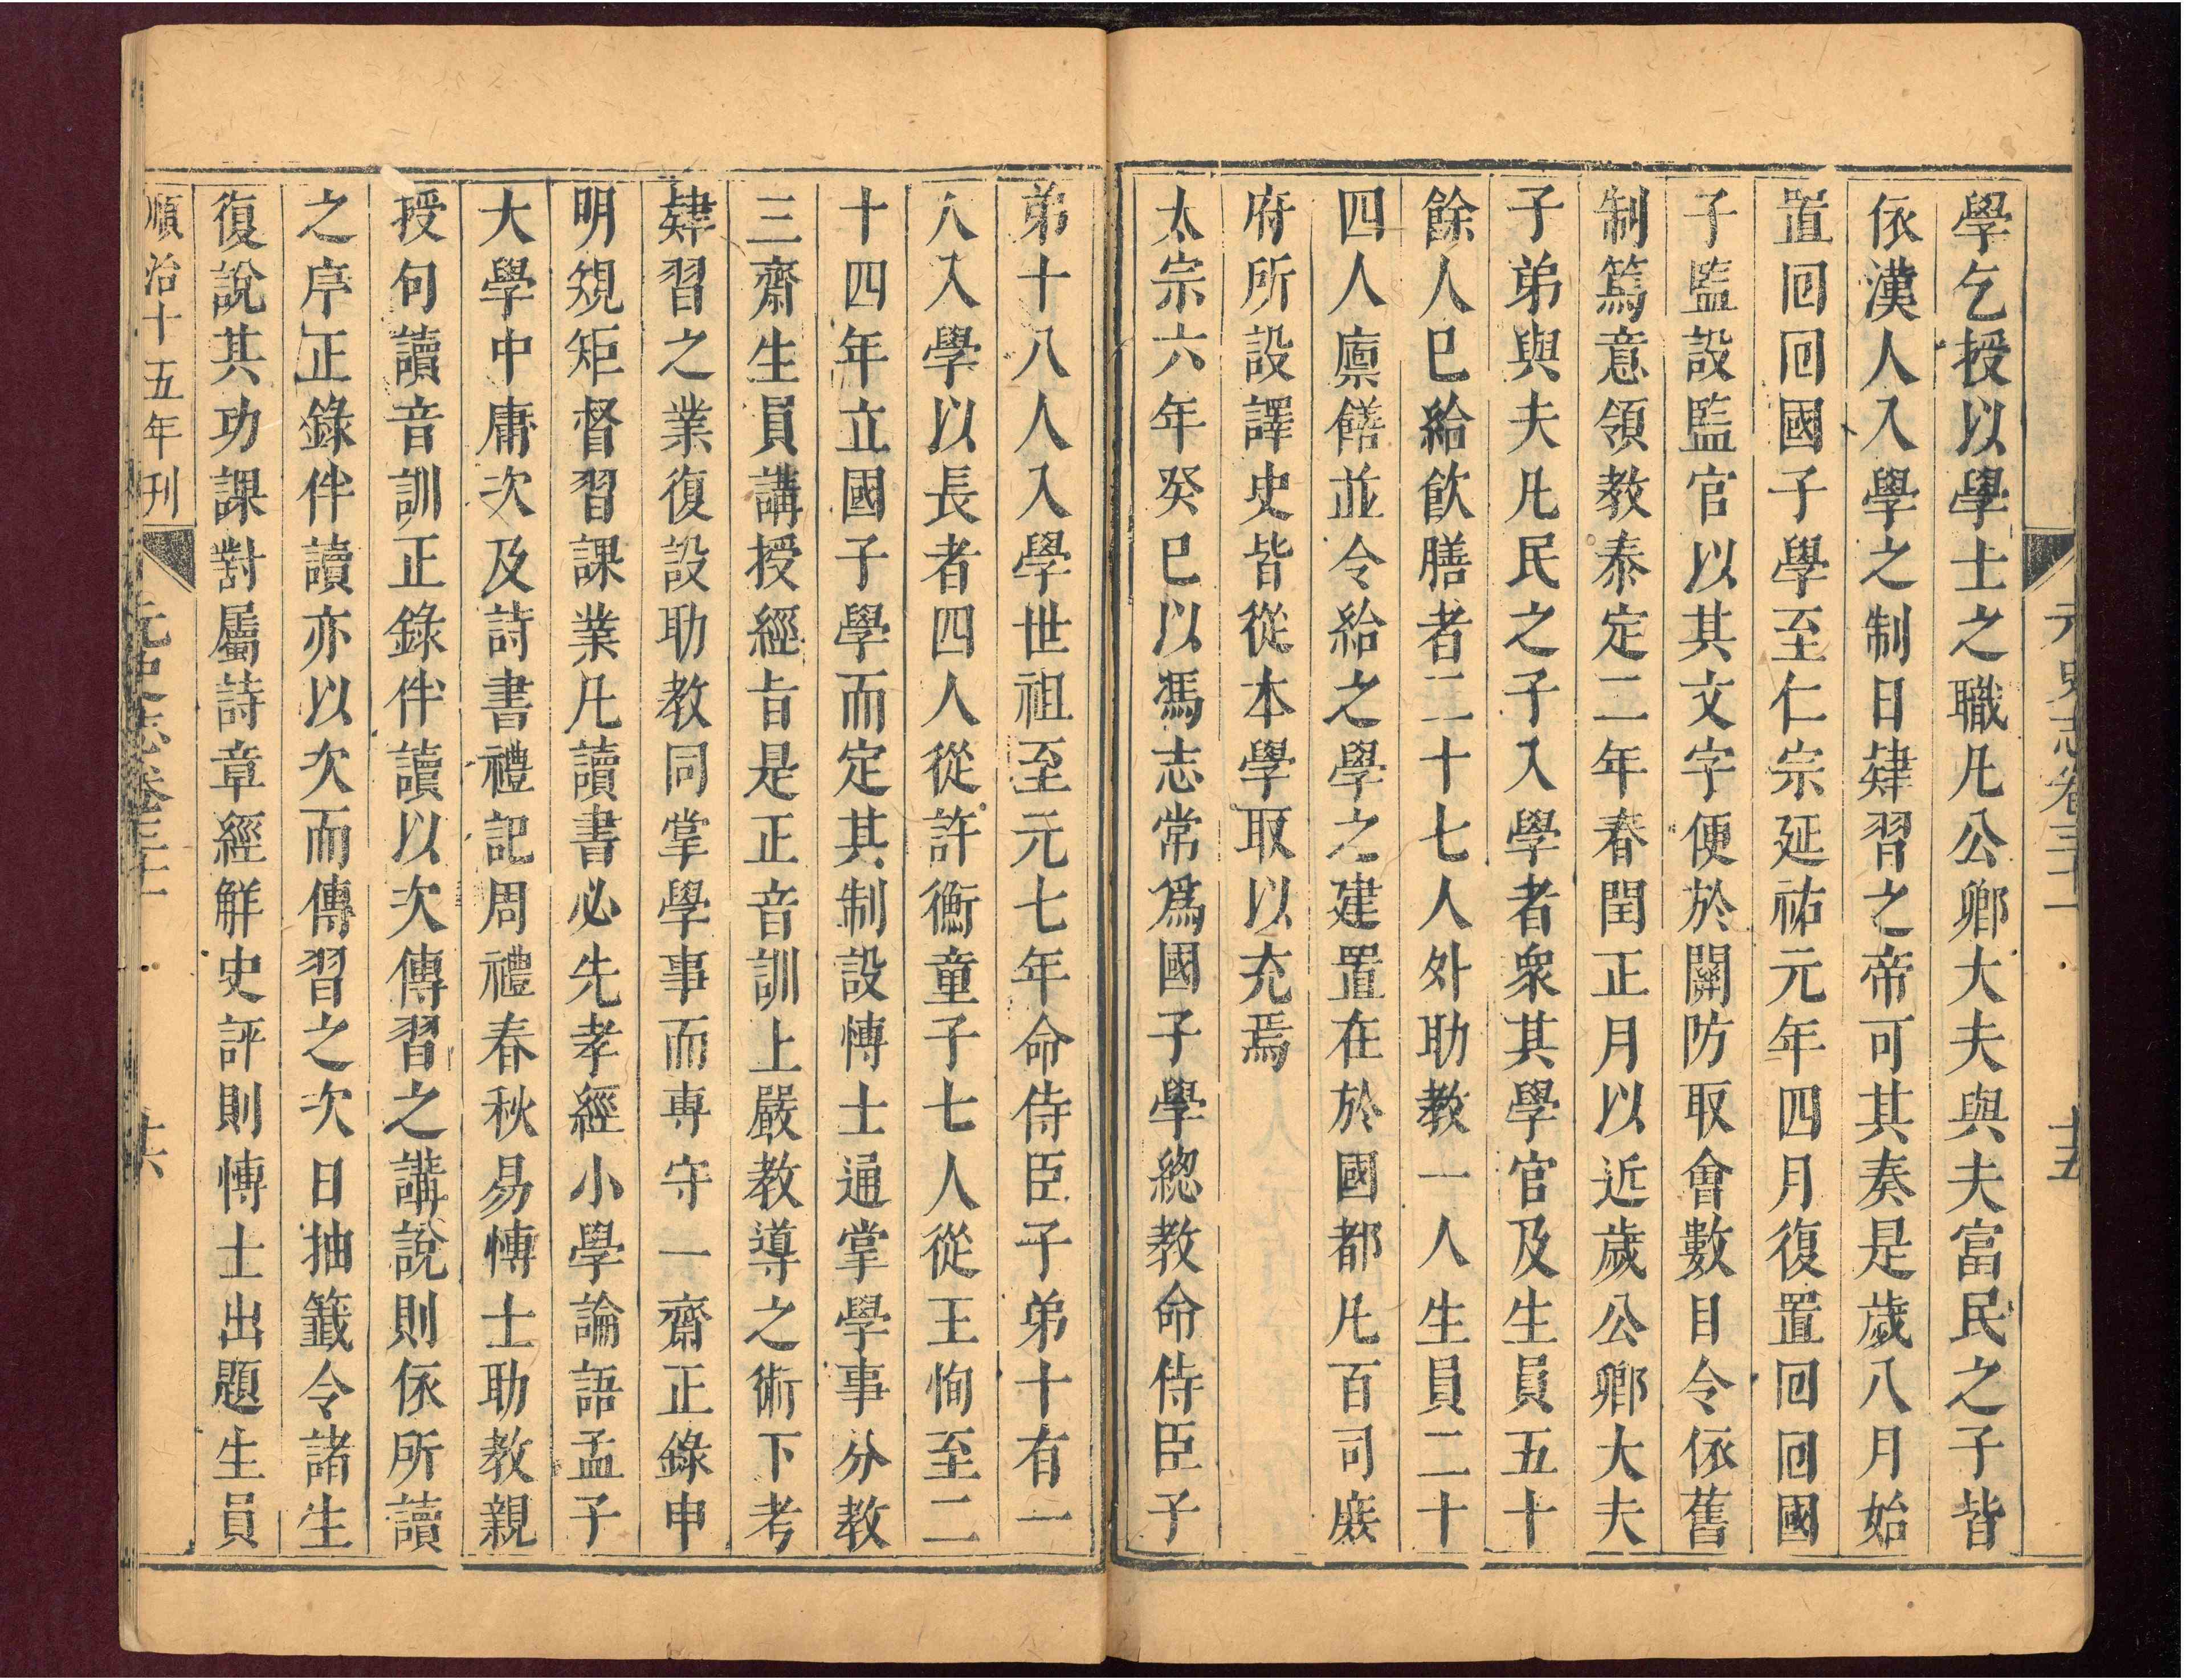 元史志卷三十一 十五
學乞授以學士之職凡公卿大夫與夫富民之子皆
依漢人入學之制日肄習之帝可其奏是歲八月始
置回回國子學至仁宗延祐元年四月復置回回國
子監設監官以其文字便於關防取會數目令依舊
制篤意領教泰定二年春閏正月以近歲公卿大夫
子弟與夫凡民之子入學者衆其學官及生員五十
餘人已給飲膳者二十七人外助教一人生員二十
四人廩饍並令給之學之建置在於國都凡百司庶
府所設譯史皆從本學取以充焉
太宗六年癸巳以馮志常爲國子學總教命侍臣子
弟十八人入學世祖至元七年命侍臣子弟十有一
人入學以長者四人從許衡童子七人從王恂至二
十四年立國子學而定其制設博士通掌學事分教
三齋生員講授經旨是正音訓上嚴教導之術下考
肄習之業復設助教同掌學事而専守一齋正錄申
明規矩督習課業凡讀書必先孝經小學論語孟子
大學中庸次及詩書禮記周禮春秋易博士助教親
授句讀音訓正錄伴讀以次傳習之講說則依所讀
之序正錄伴讀亦以次而傳習之次日抽籤令諸生
復說其功課對屬詩章經解史評則博士出題生員
順治十五年刊 元史志卷三十一 共